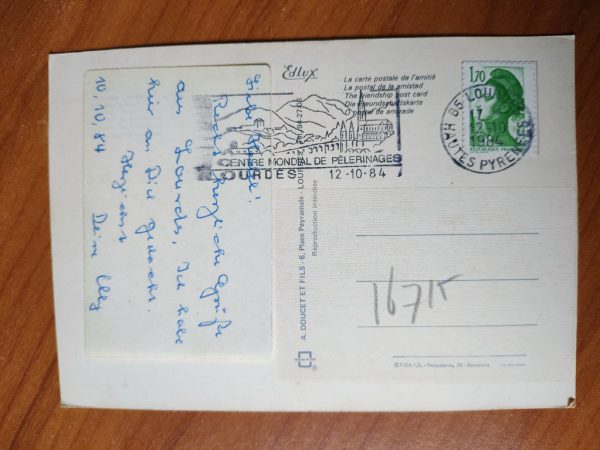 Recht herzliche Grüße
aus Lourdes, Ich habe
hier an Dich gedacht.
Herzlichst
Deine
10.10.84
Edlux
La carte postale de l'amitié
La postal de la amistad
The friendship post card
Die Freundschaftskarte
O postal de amizade
CENTRE MONDIAL DE PÈLERINAGES
LOURDES 12-10-84
1,70
65 LOURDES
12-10
1984
HAUTES PYRENEES
A. DOUCET ET FILS - 6, Place Peyramale - LOURDES
Reproduction interdite
16715